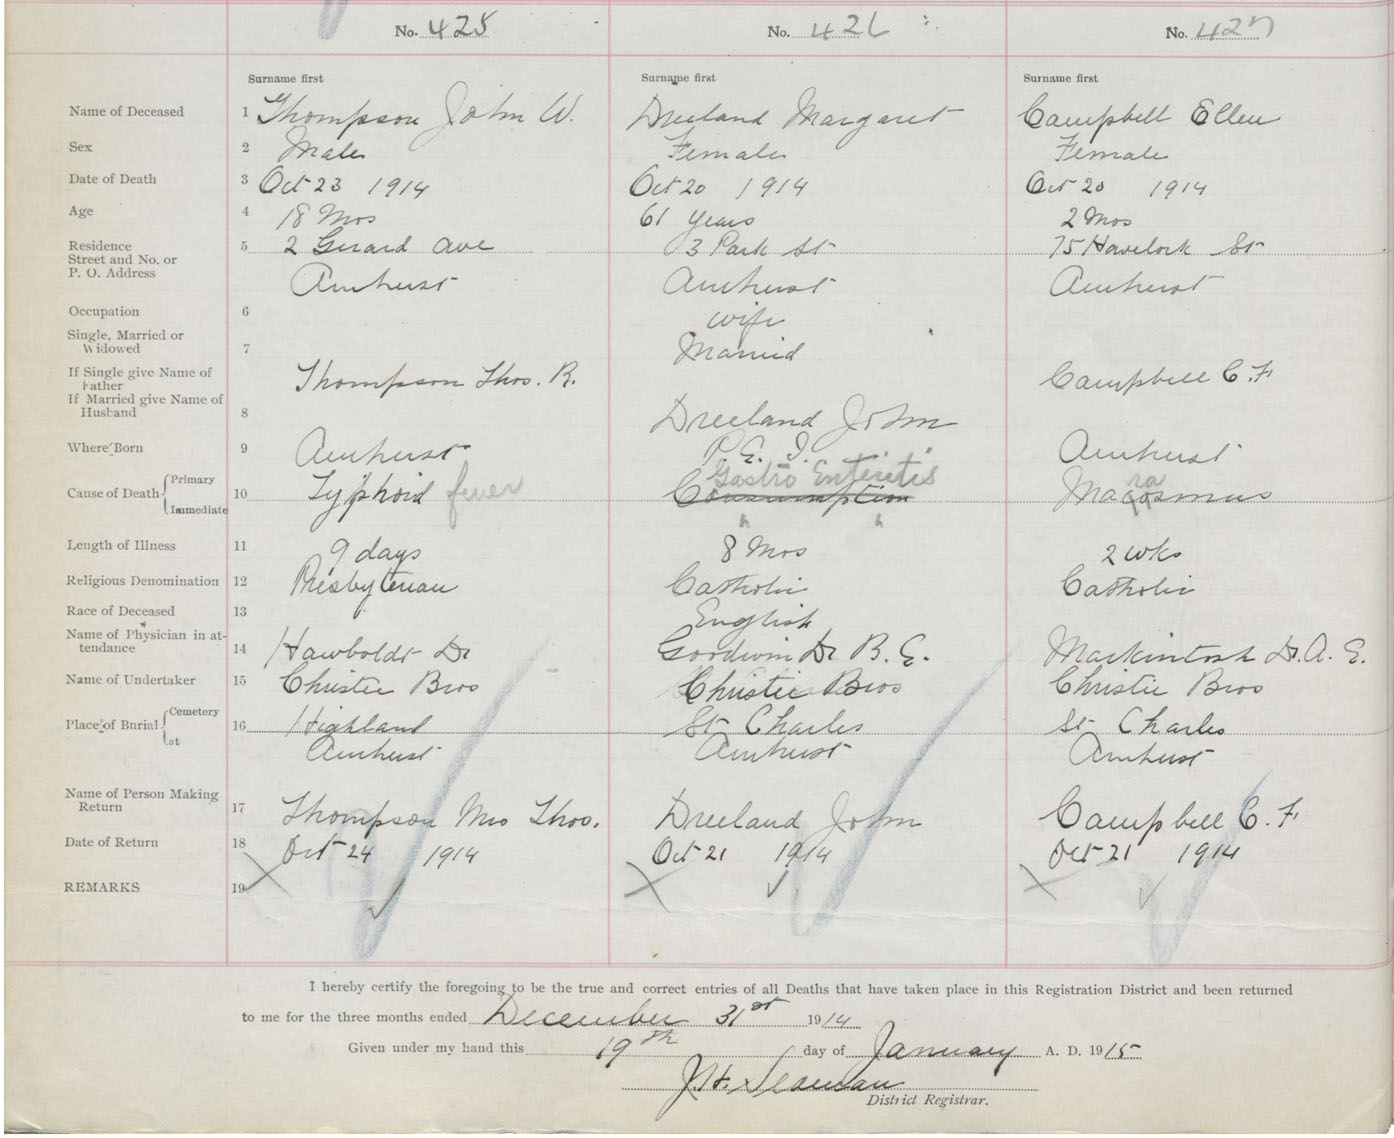 No. 425 No. 426 No. 427
Surname first Surname first Surname first
Name of Deceased 1 Thompson John W. Dreeland Margaret Campbell Ellen
Sex 2 Male Female Female
Date of Death 3 Oct 23 1914 Oct 20 1914 Oct 20 1914
Age 4 18 Mos 61 years 2 Mos
Residence 5 2 Gerard Ave 3 Park St 75 Havelock St
Street and No. or
P. O. Address Amherst Amherst Amherst
Occupation 6 wife
Single, Married or
Widowed 7 Married
If Single give Name of
Father Thompson Thos. R. Campbell C. F
If Married give Name of
Husband 8 Dreeland John
Where Born 9 Amherst P. E. I. Amherst
Primary Gastro Enteritis ra
Cause of Death 10 Typhoid fever Consumption Macosmus
Immediate
Length of Illness 11 9 days 8 Mos 2 wks
Religious Denomination 12 Presbyterian Catholic Catholic
Race of Deceased 13 English
Name of Physician in at-
tendance 14 Hawboldt Dr Goodwin Dr B. E. Mackintosh D. A. E.
Name of Undertaker 15 Christie Bros Christie Bros Christie Bros
Cemetery
Place of Burial 16 Highland St Charles St Charles
at Amherst Amherst Amherst
Name of Person Making
Return 17 Thompson Mrs Thos. Dreeland John Campbell C. F.
Date of Return 18 Oct 24 1914 Oct 21 1914 Oct 21 1914
REMARKS 19
I hereby certify the foregoing to be the true and correct entries of all Deaths that have taken place in this Registration District and been returned
to me for the three months ended December 31st 1914
Given under my hand this 19th day of January A. D. 1915
J. H. Seaman
District Registrar.